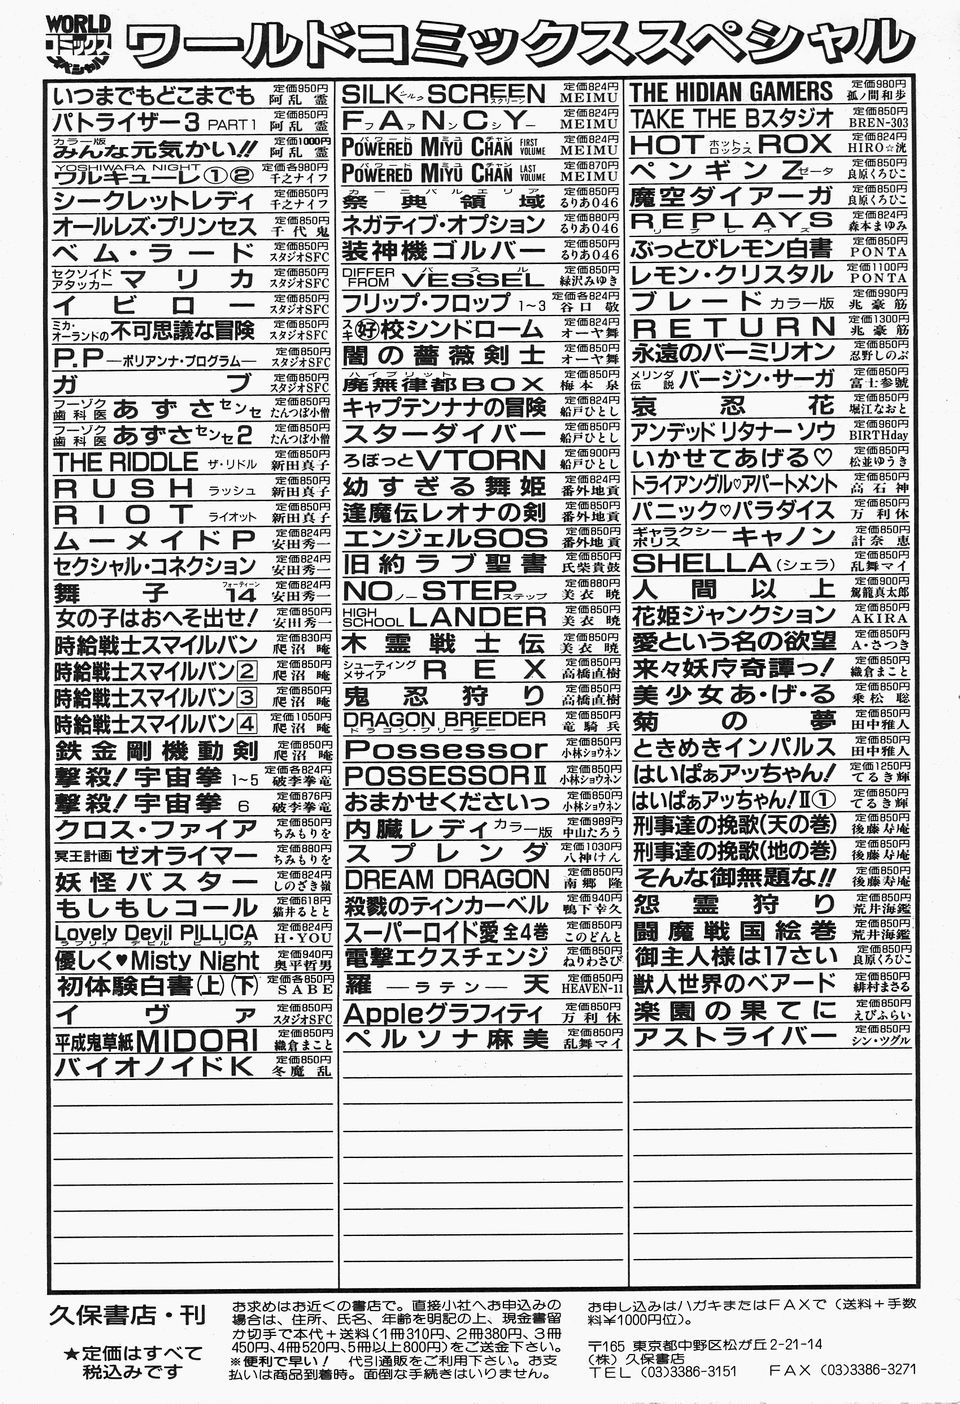 WORLD
コミックス
スペシャル
ワールドコミックススペシャル
いつまでもどこまでも 定価950円 阿乱霊
パトライザー3 PART1 定価850円 阿乱霊
カラー版 みんな元気かい!! 定価1000円 阿乱霊
YOSHIWARA NIGHT ワルキューレ①② 定価各980円 千之ナイフ
シークレットレディ 定価850円 千之ナイフ
オールレズ・プリンセス 定価850円 千代鬼
ベム・ラード 定価850円 スタジオSFC
セクソイドアタッカー マリカ 定価850円 スタジオSFC
イビロー 定価850円 スタジオSFC
ミカ・オーランドの不可思議な冒険 定価850円 スタジオSFC
P.P ―ポリアンナ・プログラム― 定価850円 スタジオSFC
ガブ 定価850円 スタジオSFC
フーゾク歯科医 あずさセンセ 定価850円 たんつぼ小僧
フーゾク歯科医 あずさセンセ2 定価850円 たんつぼ小僧
THE RIDDLE ザ・リドル 定価850円 新田真子
RUSH ラッシュ 定価850円 新田真子
RIOT ライオット 定価850円 新田真子
ムーメイドP 定価824円 安田秀一
セクシャル・コネクション 定価824円 安田秀一
舞子14 フォーティーン 定価824円 安田秀一
女の子はおへそ出せ! 定価850円 安田秀一
時給戦士スマイルバン 定価830円 爬沼庵
時給戦士スマイルバン2 定価850円 爬沼庵
時給戦士スマイルバン3 定価850円 爬沼庵
時給戦士スマイルバン4 定価1050円 爬沼庵
鉄金剛機動剣 定価850円 爬沼庵
撃殺!宇宙拳 1~5 定価各824円 破李拳竜
撃殺!宇宙拳 6 定価876円 破李拳竜
クロス・ファイア 定価850円 ちみもりを
冥王計画ゼオライマー 定価880円 ちみもりを
妖怪バスター 定価850円 しのざき嶺
もしもしコール 定価618円 猫井るとと
Lovely Devil PILLICA ラブリィ デビル ピリカ 定価824円 H・YOU
優しく♥Misty Night 定価940円 奥平哲男
初体験白書(上)(下) 定価各850円 SABE
イヴァ 定価850円 スタジオSFC
平成鬼草紙MIDORI 定価850円 織倉まこと
バイオノイドK 定価850円 冬魔乱
SILK SCREEN シルク スクリーン 定価824円 MEIMU
FANCY ファンシー 定価824円 MEIMU
POWERED MIYU CHAN パワード ミュ チャン FIRST VOLUME 定価824円 MEIMU
POWERED MIYU CHAN パワード ミュ チャン LAST VOLUME 定価870円 MEIMU
祭典領域 カーニバルエリア 定価850円 るりあ046
ネガティブ・オプション 定価850円 るりあ046
装神機ゴルバー 定価880円 るりあ046
DIFFER FROM VESSEL バスル 定価850円 緑沢みゆき
フリップ・フロップ 1~3 定価各824円 谷口敬
スキ 好校シンドローム 定価824円 オーヤ舞
闇の薔薇剣士 定価850円 オーヤ舞
廃無律都BOX ハイブリット 定価850円 梅本泉
キャプテンナナの冒険 定価824円 船戸ひとし
スターダイバー 定価850円 船戸ひとし
ろぼっとVTORN 定価900円 船戸ひとし
幼すぎる舞姫 定価850円 番外地貢
逢魔伝レオナの剣 定価850円 番外地貢
エンジェルSOS 定価850円 番外地貢
旧約ラブ聖書 定価850円 氏柴貴鼓
NO STEP ノー ステップ 定価880円 美衣暁
HIGH SCHOOL LANDER 定価850円 美衣暁
木霊戦士伝 定価850円 美衣暁
シューティングメサイア REX 定価850円 高橋直樹
鬼忍狩り 定価850円 高橋直樹
DRAGON BREEDER ドラゴン・ブリーダー 定価850円 竜騎兵
Possessor 定価850円 小林ショウネン
POSSESSOR II 定価850円 小林ショウネン
おまかせくださいっ 定価850円 小林ショウネン
内臓レディ カラー版 定価989円 中山たろう
スプレンダ 定価1030円 八神けん
DREAM DRAGON 定価850円 南郷隆
殺戮のティンカーベル 定価940円 鴨下幸久
スーパーロイド愛 全4巻 定価850円 このどんと
電撃エクスチェンジ 定価850円 ねりわさび
羅天 ―ラテン― 定価850円 HEAVEN-11
Appleグラフィティ 定価850円 万利休
ペルソナ麻美 定価850円 乱舞マイ
THE HIDIAN GAMERS 定価980円 狐ノ間和歩
TAKE THE Bスタジオ 定価850円 BREN-303
HOT ROX ホットロックス 定価824円 HIRO☆洸
ペンギンZ ゼータ 定価850円 良原くろひこ
魔空ダイアーガ 定価850円 良原くろひこ
REPLAYS リプレイズ 定価824円 森本まゆみ
ぶっとびレモン白書 定価850円 PONTA
レモン・クリスタル 定価1100円 PONTA
ブレード カラー版 定価990円 兆豪筋
RETURN 定価1300円 兆豪筋
永遠のバーミリオン 定価850円 忍野しのぶ
メリンダ伝説 バージン・サーガ 定価850円 富士参號
哀忍花 定価850円 堀江なおと
アンデッドリタナーソウ 定価960円 BIRTHday
いかせてあげる♡ 定価850円 松並ゆうき
トライアングル♡アパートメント 定価850円 高石神
パニック♡パラダイス 定価850円 万利休
ギャラクシーポリス キャノン 定価850円 計奈恵
SHELLA(シェラ) 定価850円 乱舞マイ
人間以上 定価900円 駕籠真太郎
花姫ジャンクション 定価850円 AKIRA
愛という名の欲望 定価850円 A・さつき
来々妖序奇譚っ! 定価850円 織倉まこと
美少女あ・げ・る 定価850円 乗松聡
菊の夢 定価850円 田中雅人
ときめきインパルス 定価850円 田中雅人
はいぱぁアッちゃん! 定価1250円 てるき輝
はいぱぁアッちゃん!II① 定価850円 てるき輝
刑事達の挽歌(天の巻) 定価850円 後藤寿庵
刑事達の挽歌(地の巻) 定価850円 後藤寿庵
そんな御無題な!! 定価850円 後藤寿庵
怨霊狩り 定価850円 荒井海鑑
闘魔戦国絵巻 定価850円 荒井海鑑
御主人様は17さい 定価850円 良原くろひこ
獣人世界のベアード 定価850円 緋村まさる
楽園の果てに 定価850円 えびふらい
アストライバー 定価850円 シン・ツグル
久保書店・刊
★定価はすべて
税込みです
お求めはお近くの書店で。直接小社へお申込みの
場合は、住所、氏名、年齢を明記の上、現金書留
か切手で本代+送料(1冊310円、2冊380円、3冊
450円、4冊520円、5冊以上800円)をご送金下さい。
※便利で早い! 代引通販をご利用下さい。お支
払いは商品到着時。面倒な手続きはいりません。
お申し込みはハガキまたはFAXで(送料+手数
料¥1000円位)。
〒165 東京都中野区松が丘2-21-14
(株)久保書店
TEL (03)3386-3151 FAX (03)3386-3271